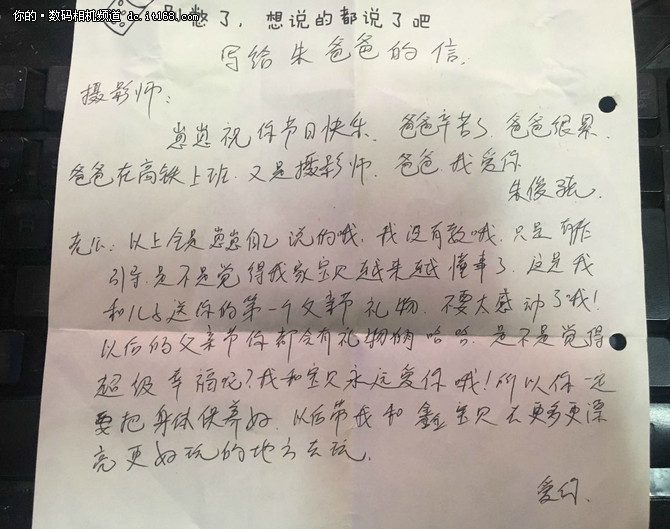 你的·数码相机频道 dc.it168.com
别憋了，想说的都说了吧
写给朱爸爸的信.
摄影师：
崽崽祝你节日快乐. 爸爸辛苦了. 爸爸很累.
爸爸在高铁上班. 又是摄影师. 爸爸我爱你
朱俊
以上全是崽崽自己说的哦, 我没有教哦. 只是有所
引导. 是不是觉得我家宝贝越来越懂事了. 这是我
和儿子送你的第一个父亲节礼物. 不要太感动了哦!
以后的父亲节你都会有礼物哟哈哈. 是不是觉得
超级幸福呢? 我和宝贝永远爱你哦! 所以你一定
要把身体保养好. 以后带我和鑫宝贝去更多更漂
亮更好玩的地方去玩.
爱你.